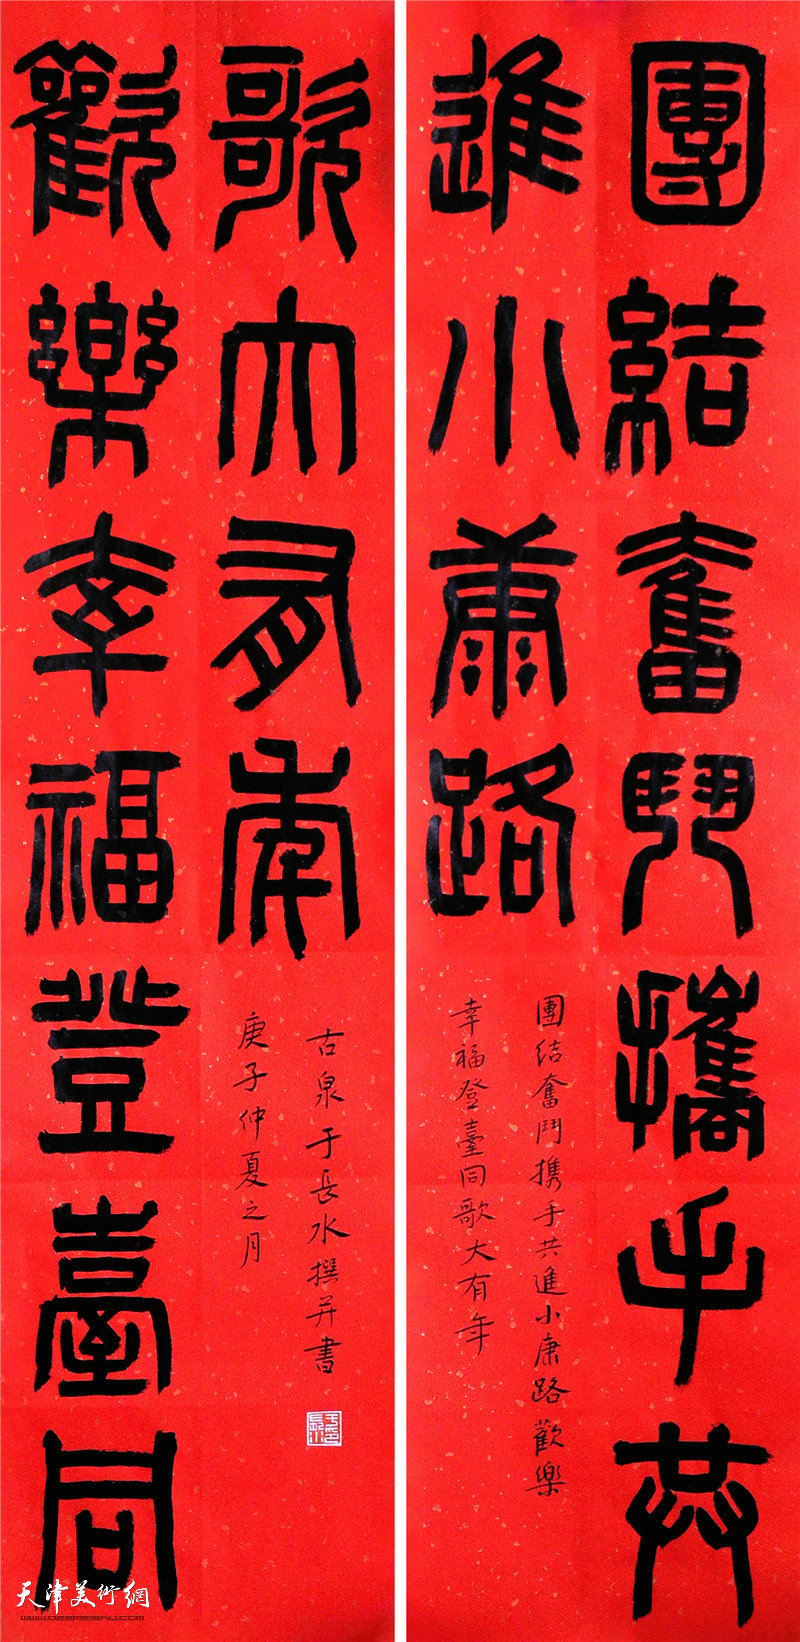 團結奮鬥攜手共
進小康路
團結奮鬥携手共進小康路歡樂
幸福登臺同歌大有年
歡樂幸福登臺同
歌大有年
古泉于長水撰并書
庚子仲夏之月
天津美術網